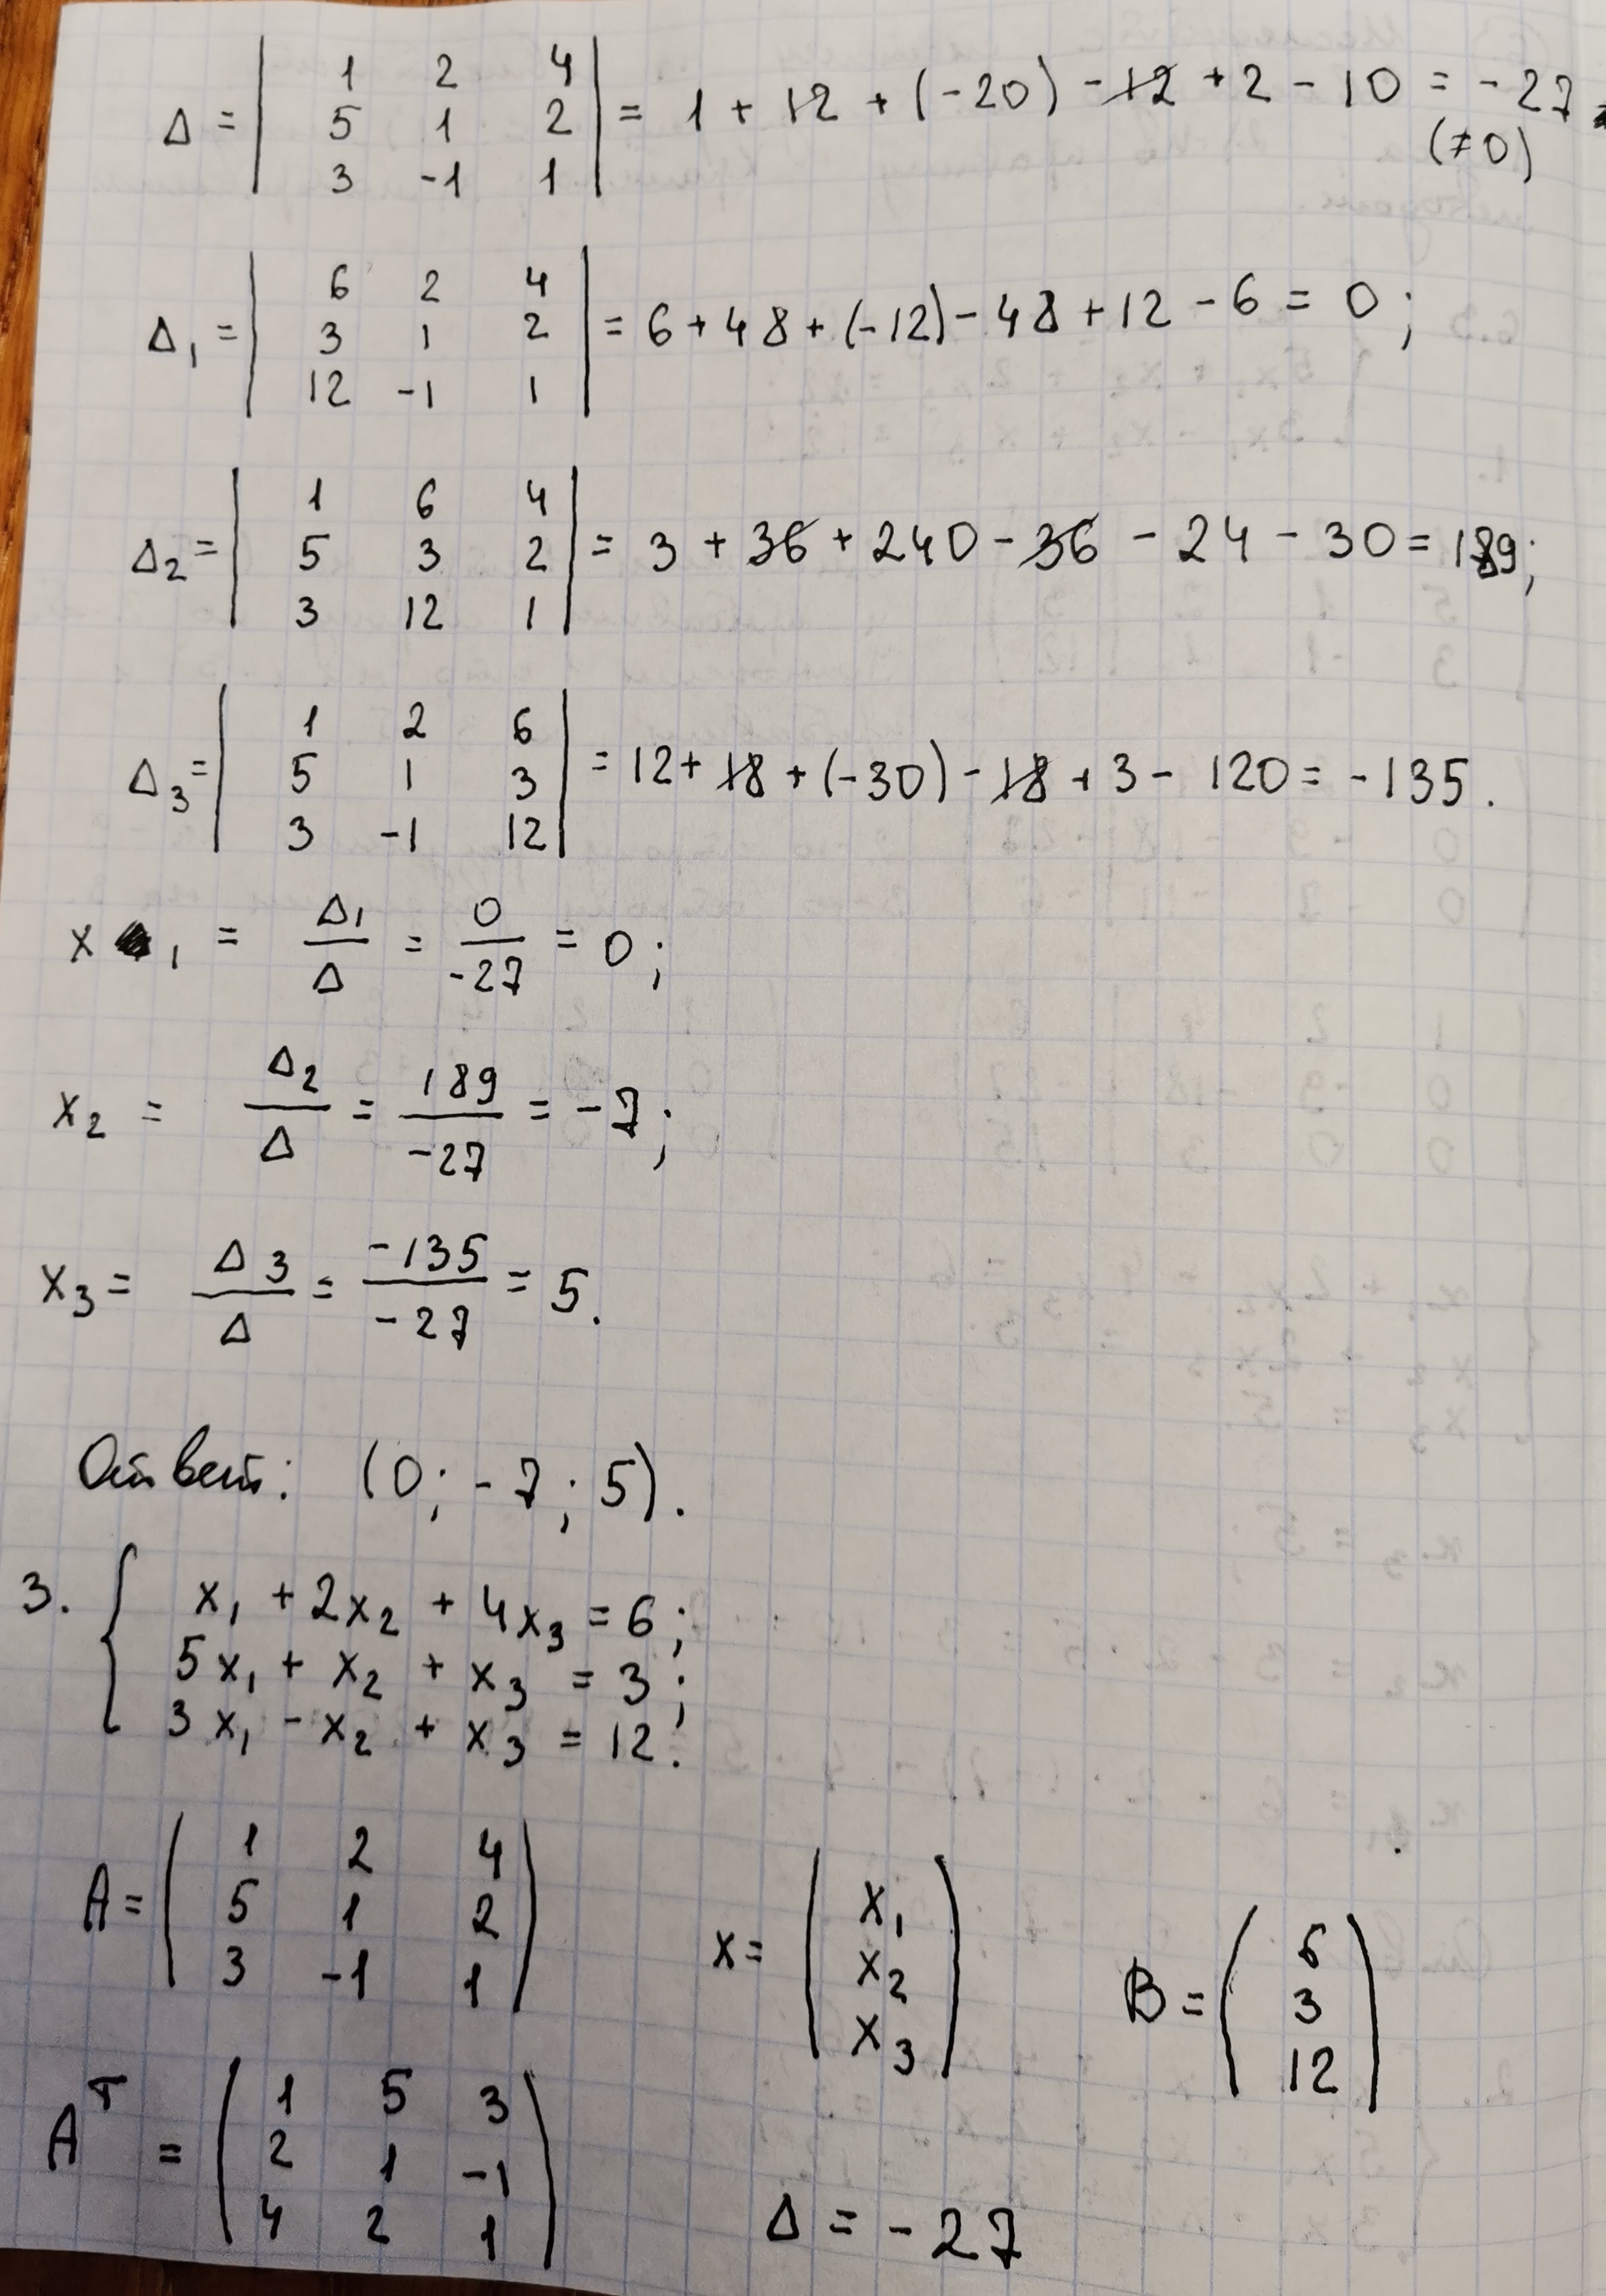 Δ = | 1 2 4 |
| 5 1 2 | = 1 + 12 + (-20) - 12 + 2 - 10 = -27
| 3 -1 1 | (≠0)
Δ₁ = | 6 2 4 |
| 3 1 2 | = 6 + 48 + (-12) - 48 + 12 - 6 = 0;
| 12 -1 1 |
Δ₂ = | 1 6 4 |
| 5 3 2 | = 3 + 36 + 240 - 36 - 24 - 30 = 189;
| 3 12 1 |
Δ₃ = | 1 2 6 |
| 5 1 3 | = 12 + 18 + (-30) - 18 + 3 - 120 = -135.
| 3 -1 12 |
x₁ = Δ₁/Δ = 0/-27 = 0;
x₂ = Δ₂/Δ = 189/-27 = -7;
x₃ = Δ₃/Δ = -135/-27 = 5.
Ответ: (0; -7; 5).
3. { x₁ + 2x₂ + 4x₃ = 6;
5x₁ + x₂ + x₃ = 3;
3x₁ - x₂ + x₃ = 12.
A = ( 1 2 4 )
( 5 1 2 )
( 3 -1 1 )
x = ( x₁ )
( x₂ )
( x₃ )
B = ( 6 )
( 3 )
( 12 )
Aᵀ = ( 1 5 3 )
( 2 1 -1 )
( 4 2 1 )
Δ = -27